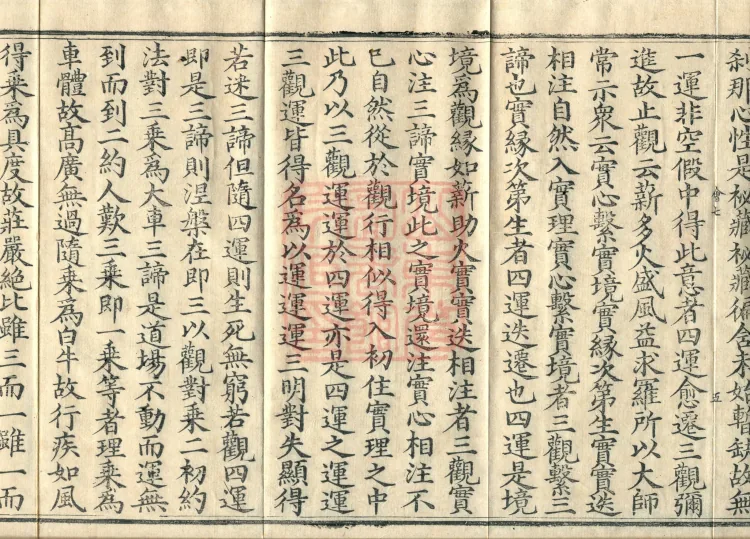 刹那心性是祕藏祕藏術舍未始暫缺故無
一運非空假中得此意者四運愈遷三觀彌
進故止觀云薪多火盛風益求羅所以大師
常示衆云實心繫實境實緣次第生實實迭
相注自然入實理實心繫實境者三觀繫三
諦也實緣次第生者四運迭遷也四運是境
境爲觀緣如薪助火實實迭相注者三觀實
心注三諦實境此之實境還注實心相注不
已自然從於觀行相似得入初住實理之中
此乃以三觀運運於四運亦是四運之運運
三觀運皆得名爲以運運運三明對失顯得
若迷三諦但隨四運則生死無窮若觀四運
即是三諦則涅槃在即三以觀對乗二初約
法對三乗爲大車三諦是道場不動而運無
到而到二約人歎三乗即一乗等者理乗爲
車體故高廣無過隨乗爲白牛故行疾如風
得乗爲具度故莊嚴絶比雖三而一雖一而
五